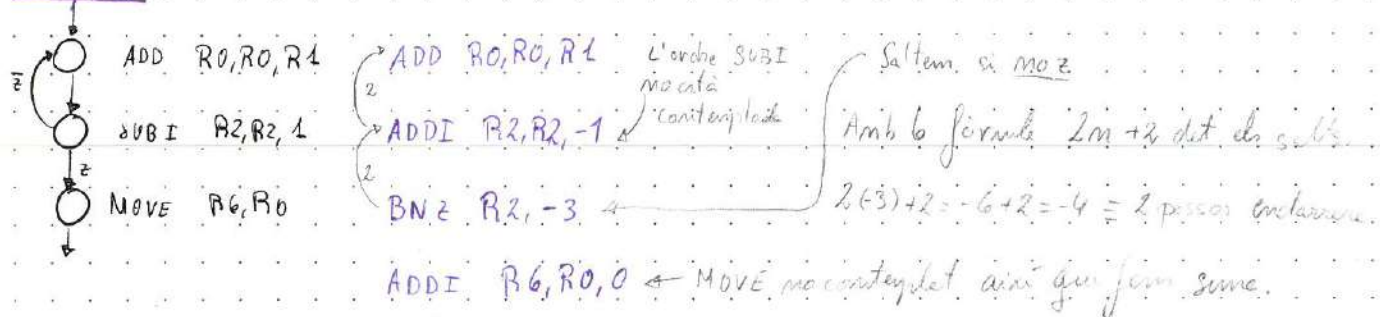 ADD R0,R0,R1
z̄
SUBI R2,R2,1
z
MOVE R6,R0
ADD R0,R0,R1
2
ADDI R2,R2,-1
2
BNZ R2,-3
ADDI R6,R0,0 ← MOVE no contemplat així que fem suma.
L'ordre SUBI
no està
contemplada
Saltem si no z
Amb la fórmula 2n+2 det els salts.
2(-3)+2=-6+2=-4 = 2 passos endarrere.